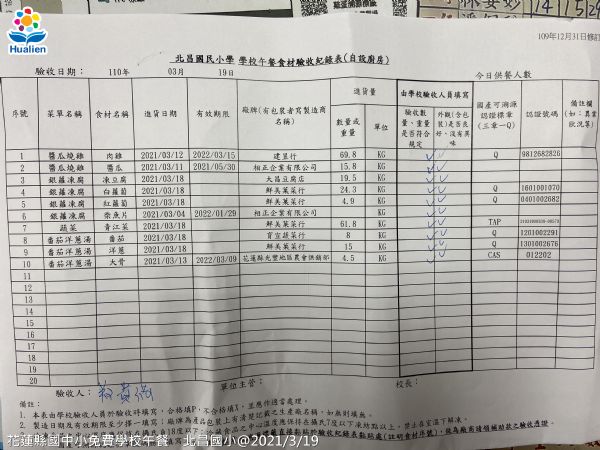 Hualien
109年12月31日修訂
北昌國民小學 學校午餐食材驗收紀錄表(自設廚房)
驗收日期： 110年 03月 19日 今日供餐人數
序號 菜單名稱 食材名稱 進貨日期 有效期限 廠牌(有包裝者寫製造商名稱) 進貨量 數量或重量 單位 由學校驗收人員填寫 驗收數量、重量是否符合規定 外觀(含包裝)是否良好、沒有異味 國產可溯源認證標章(三章一Q) 認證號碼 備註欄(如：異業狀況等)
1 醬瓜燒雞 肉雞 2021/03/12 2022/03/15 建里行 69.8 KG ✓ ✓ Q 9812682826
2 醬瓜燒雞 醬瓜 2021/03/11 2021/05/30 相正企業有限公司 15.8 KG ✓ ✓
3 銀蘿凍腐 凍豆腐 2021/03/18 大昌豆腐店 19.5 KG ✓ ✓
4 銀蘿凍腐 白蘿蔔 2021/03/18 鮮美菓菜行 24.3 KG ✓ ✓ Q 1601001070
5 銀蘿凍腐 紅蘿蔔 2021/03/18 鮮美菓菜行 4.9 KG ✓ ✓ Q 0401002682
6 銀蘿凍腐 柴魚片 2021/03/04 2022/01/29 相正企業有限公司 KG ✓ ✓
7 蔬菜 青江菜 2021/03/18 鮮美菓菜行 61.8 KG ✓ ✓ TAP
8 番茄洋蔥湯 番茄 2021/03/18 育宣蔬菜行 8 KG ✓ ✓ Q 1201002291
9 番茄洋蔥湯 洋蔥 2021/03/18 鮮美菓菜行 15 KG ✓ ✓ Q 1301002676
10 番茄洋蔥湯 大骨 2021/03/13 2022/03/09 花蓮縣光豐地區農會供銷部 4.5 KG ✓ ✓ CAS 012202
11
12
13
14
15
16
17
18
19
20
驗收人： 單位主管： 校長：
備註：
1. 本表由學校驗收人員於驗收時填寫，合格填P，不合格填X，並應作適當處理。
2. 製造日及有效期限至少擇一填寫；廠牌為產品包裝上有清楚記載之生產廠名稱，如無則填無。
花蓮縣國中小免費學校午餐 - 北昌國小@2021/3/19